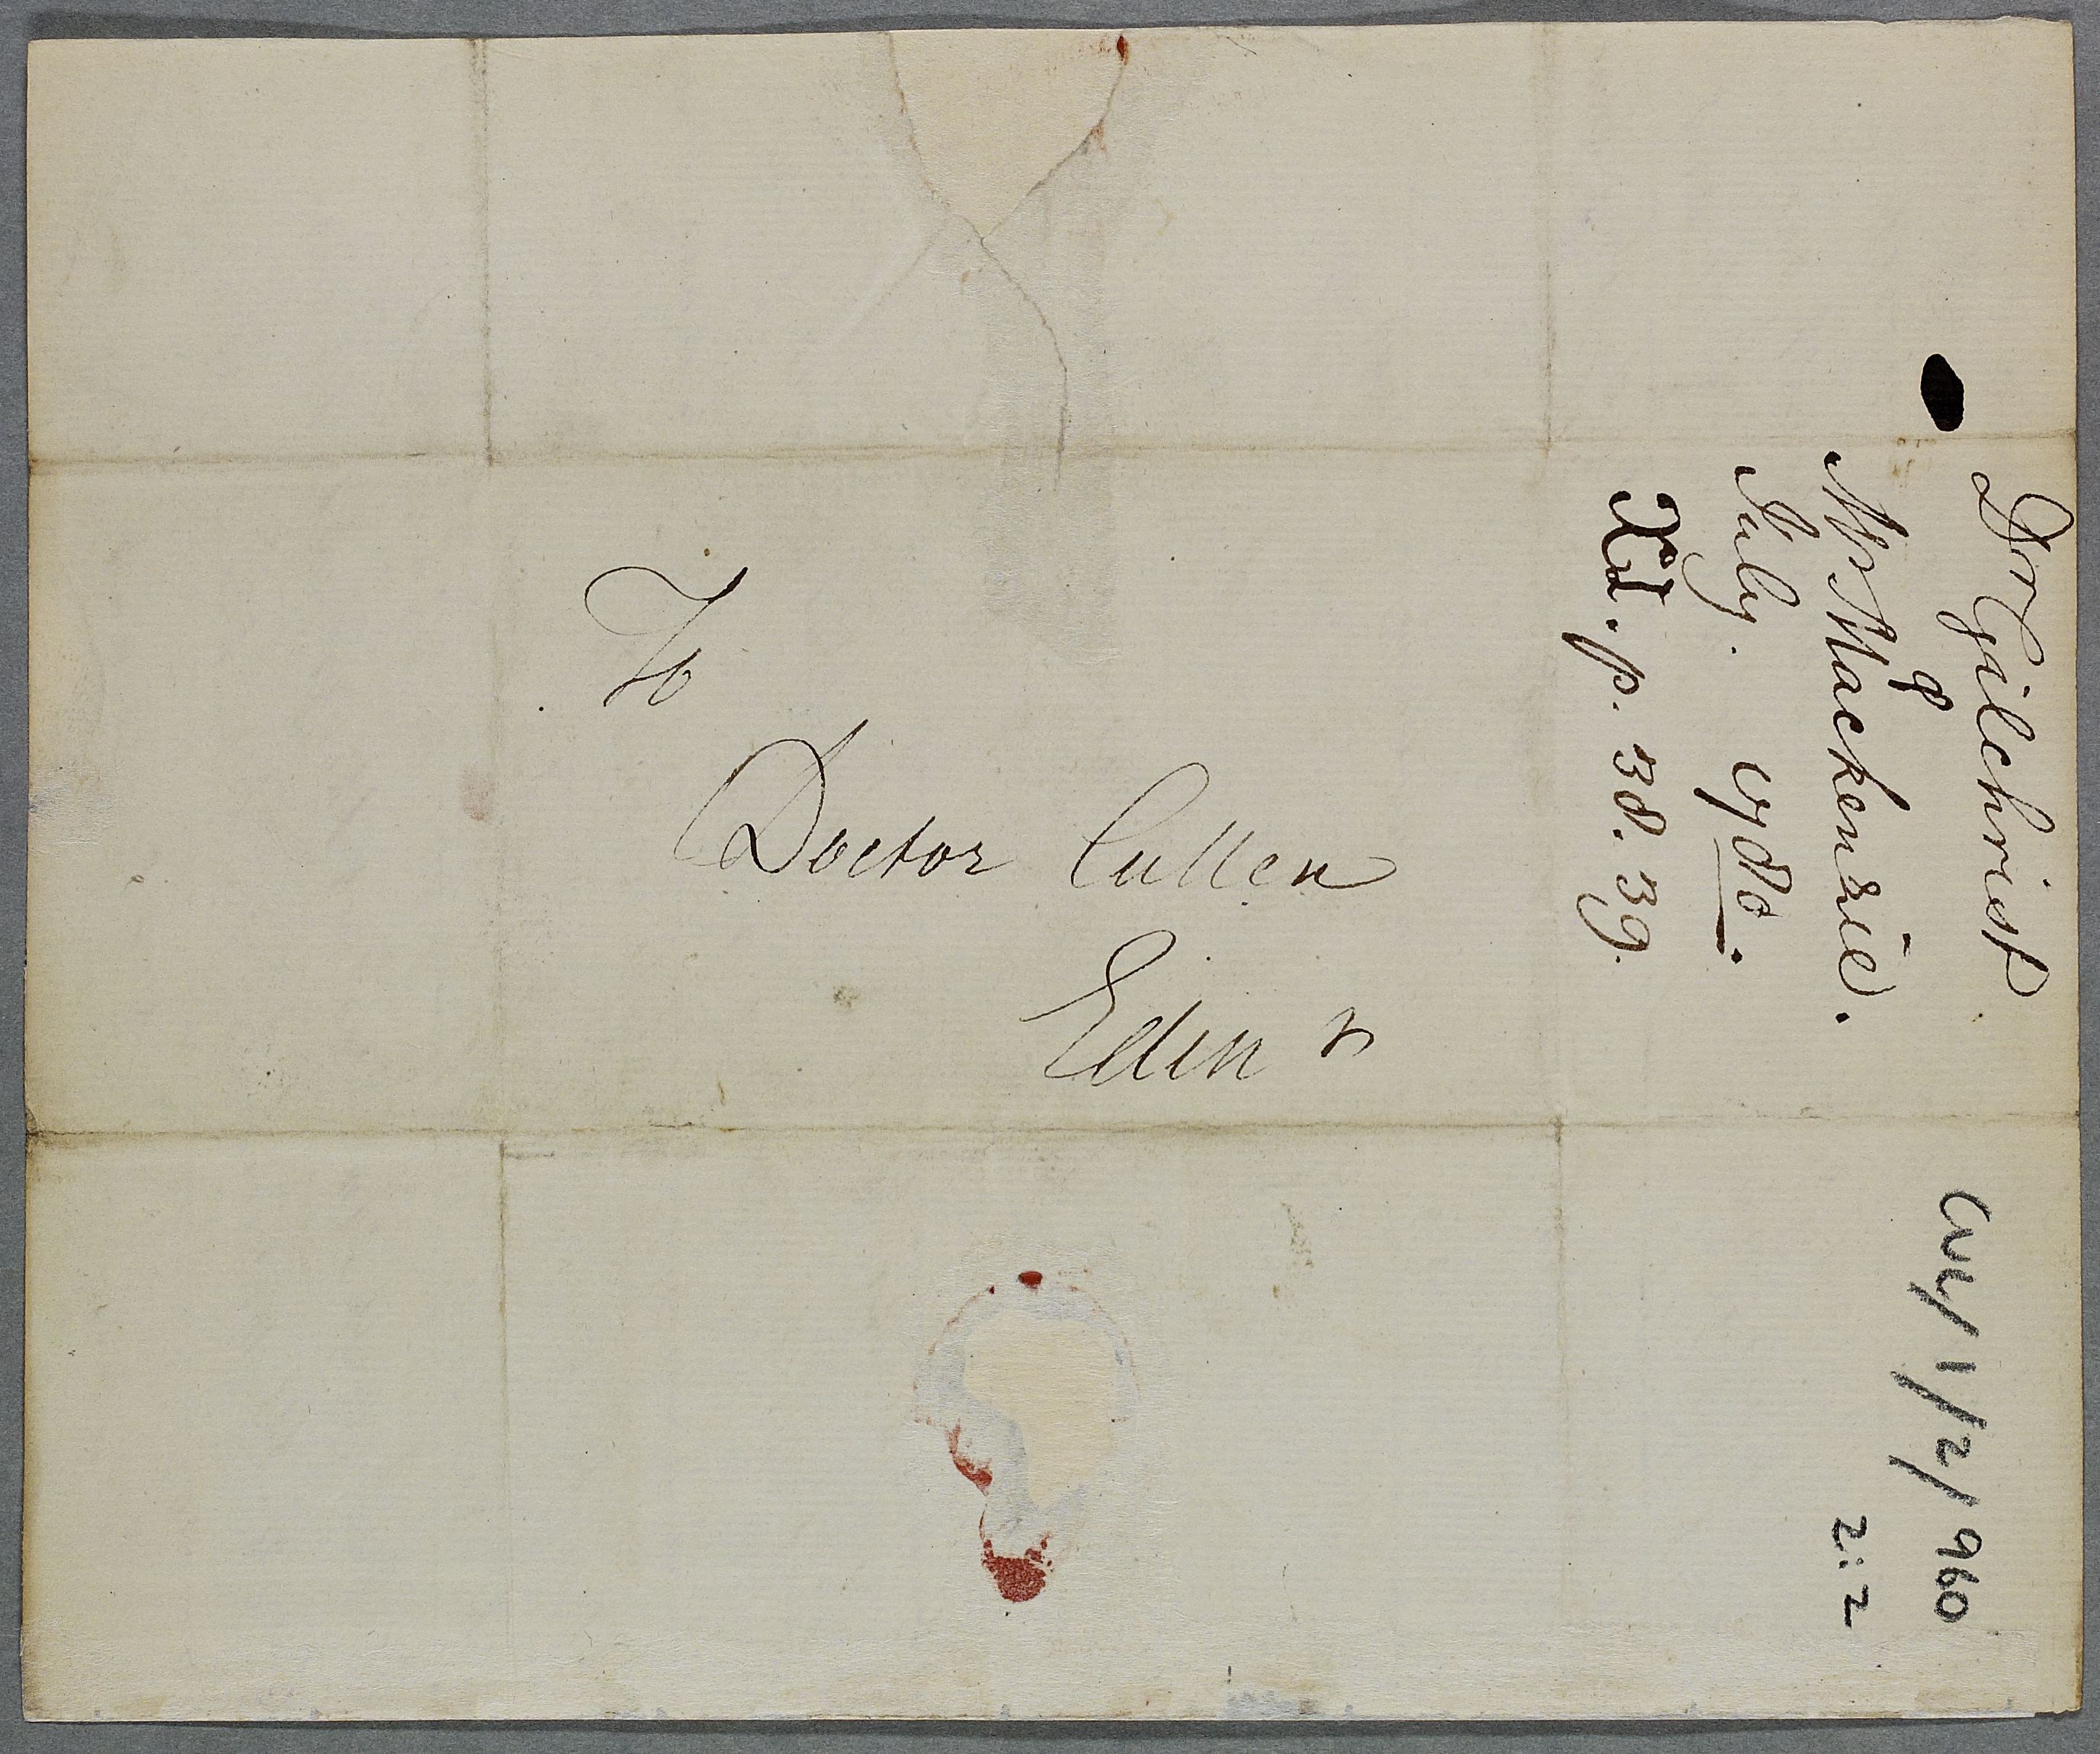 To
Doctor Cullen
Edinr
Dr Gilchrist
Mr Mackenzie.
July. 1780.
XI. p. 38. 39.
CUL/1/2/960
2:2